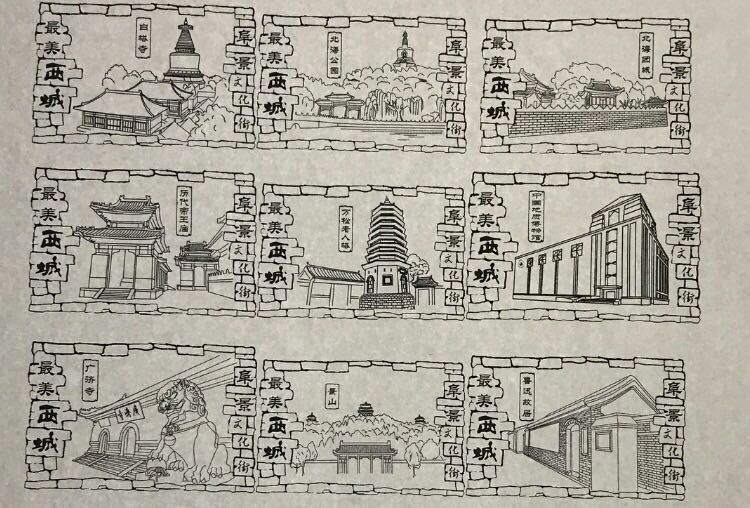 最美西城
白塔寺
阜景文化街
最美西城
北海公园
阜景文化街
最美西城
北海团城
阜景文化街
最美西城
历代帝王庙
阜景文化街
最美西城
万松老人塔
阜景文化街
最美西城
中国地质博物馆
阜景文化街
最美西城
广济寺
阜景文化街
最美西城
景山
阜景文化街
最美西城
鲁迅故居
阜景文化街